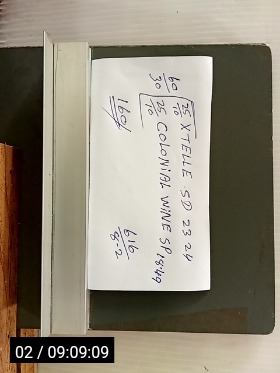 60/30
25/10 XTELLE SD 23 24
25/10 COLONIAL WINE SP 18:49
160/
616
8-2
02 / 09:09:09